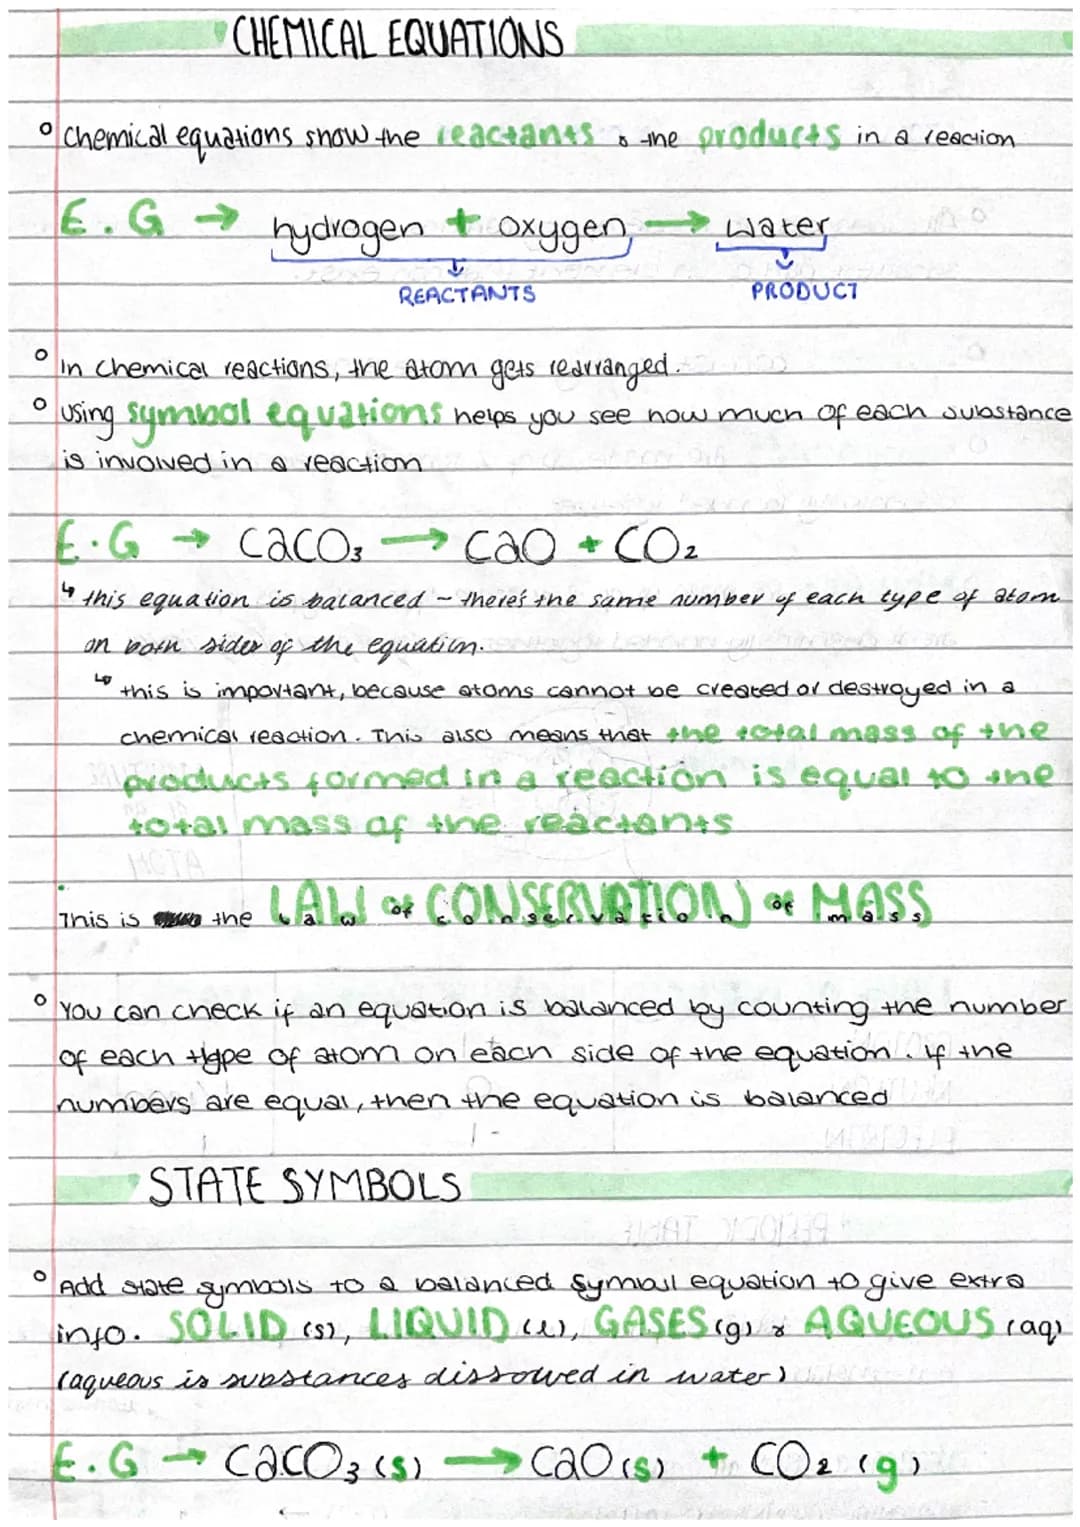 CHEMICAL EQUATIONS
° Chemical equations show the reactants & the products in a reaction
E.G → hydrogen + oxygen → water
REACTANTS PRODUCT
° In chemical reactions, the atom gets rearranged.
° Using symbol equations helps you see how much of each substance
is involved in a reaction
E.G → CaCO₃ → CaO + CO₂
↳ this equation is balanced - there's the same number of each type of atom
on both sides of the equation.
↳ this is important, because atoms cannot be created or destroyed in a
chemical reaction. This also means that the total mass of the
products formed in a reaction is equal to the
total mass of the reactants
This is the LAW of CONSERVATION of MASS
° You can check if an equation is balanced by counting the number
of each type of atom on each side of the equation. if the
numbers are equal, then the equation is balanced
STATE SYMBOLS
° Add state symbols to a balanced symbol equation to give extra
info. SOLID (s), LIQUID (l), GASES (g) & AQUEOUS (aq)
(aqueous is substances dissolved in water)
E.G → CaCO₃ (s) → CaO (s) + CO₂ (g)